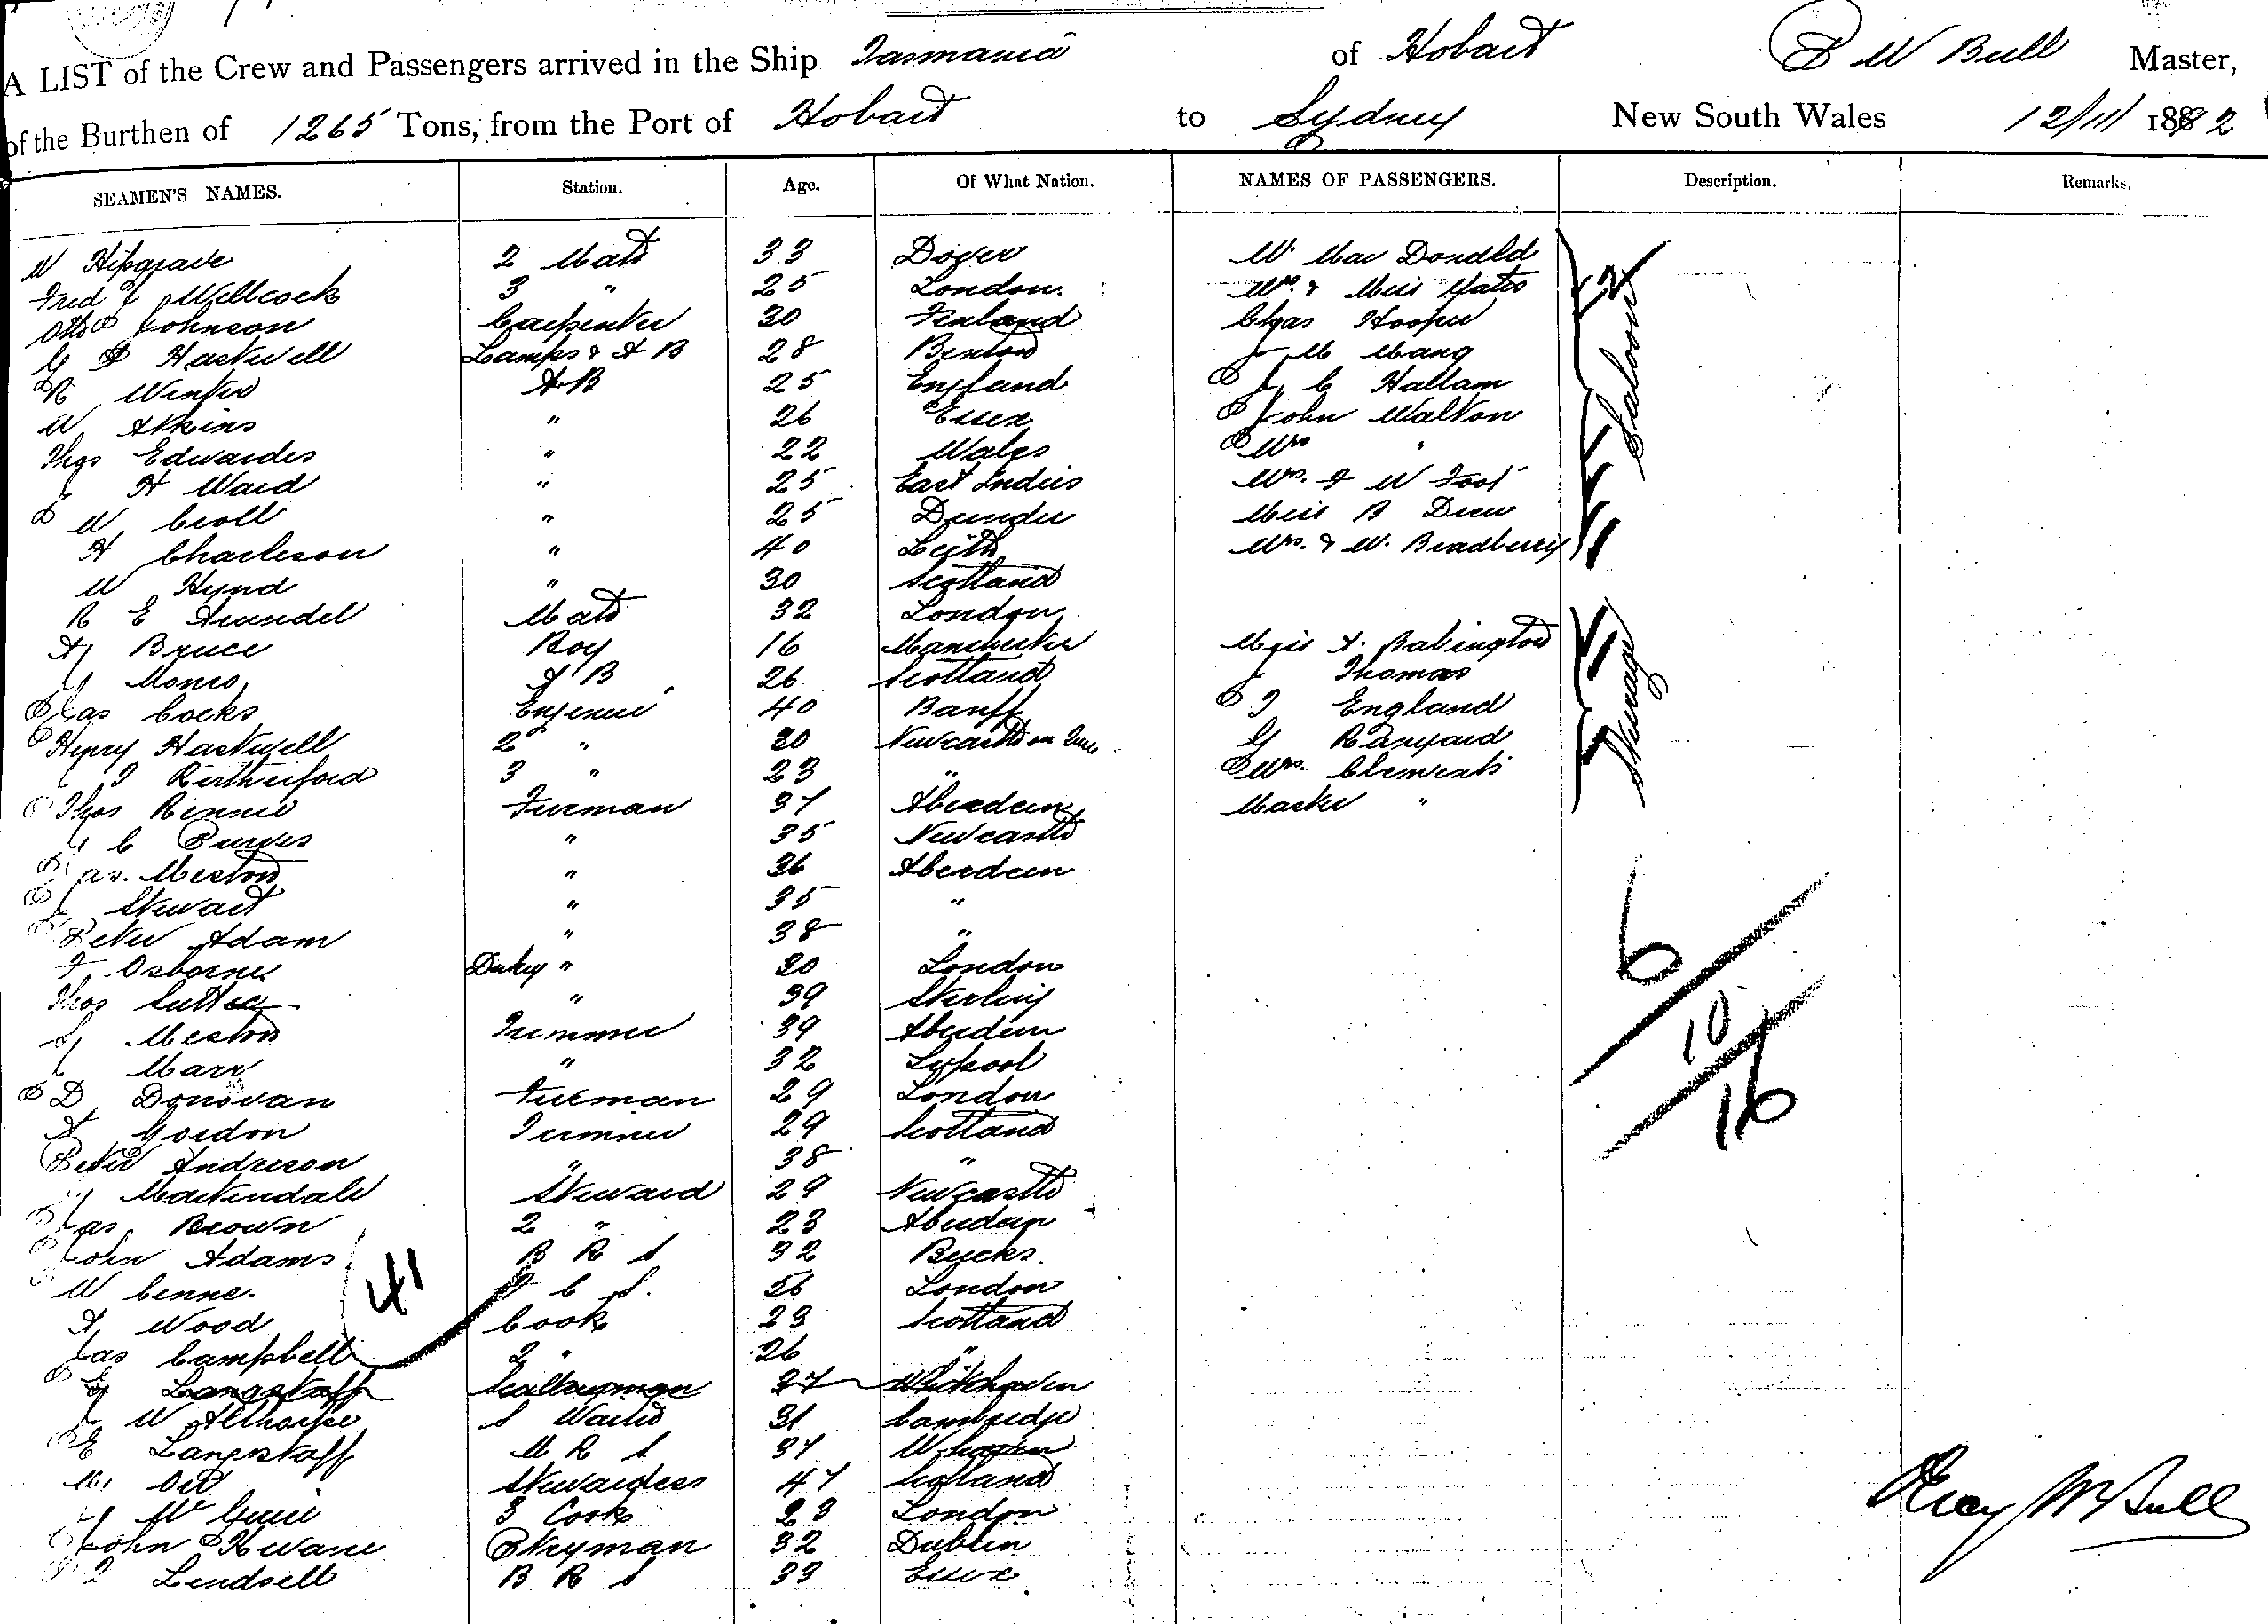 A LIST of the Crew and Passengers arrived in the Ship Tasmania of Hobart P W Bull Master,
of the Burthen of 1265 Tons, from the Port of Hobart to Sydney New South Wales 12/11/ 1882
SEAMEN'S NAMES. Station. Age. Of What Nation. NAMES OF PASSENGERS. Description. Remarks.
W Hipgrave 2 Mate 33 Dover W. Mac Donald
Fred J Willcock 3 " 25 London. Mr. & Miss Yates Saloon
Otto Johnson Carpenter 30 Finland Chas Hooper
G Haskwell Lamps & A B 28 J M Mang
R Winter A B 25 England J C Hallam
W Atkins " 26 Essex John Walton
Thos Edwardes " 22 Wales Mrs "
J H Ward " 25 East Indies Mr. F W Foot
W Croll " 25 Dundee Miss B Drew
H Charleson " 40 Leith Mrs. & W. Bradberry
W Hynd " 30 Scotland
R E Arundel Mate 32 London
A Bruce Boy 16 Manchester Miss A. Babington Steerage
J Monro A B 26 Scotland J Thomas
Jas Cocks Engineer 40 Banff T England
Henry Haskwell 2 " 30 Newcastle on Tyne G Banyard
J T Rutherford 3 " 23 " Mrs. Clements
Thos Rennie Fireman 37 Aberdeen Master "
J C Purves " 35 Newcastle
Jas. Meston " 36 Aberdeen
J Stewart " 35 "
Peter Adam " 38 "
F. Osborne Dnky " 30 London
Thos " 39 Stirling
J Meston Trimmer 39 Aberdeen
J Marr " 32 Lpool
D Donovan Fireman 29 London
A Gordon Trimmer 29 Scotland
Peter Anderson " 38 "
J Martindale Steward 29 Newcastle
Jas Brown 2 " 23 Aberdeen
John Adams B R S 32 Bucks.
W C S. 56 London
A Wood Cook 23 Scotland
Jas Campbell 2 " 26 "
G Langstaff 37 Whitehaven
J W Althorpe S Waiter 31 Cambridge
E Langstaff M R S 37 W haven
Mrs Orr Stewardess 47 Scotland
J Mc 3 Cook 23 London
John Kwane Ptryman 32 Dublin
T Lindsell B R S 33 Essex
41
6
10
16
Percy W Bull